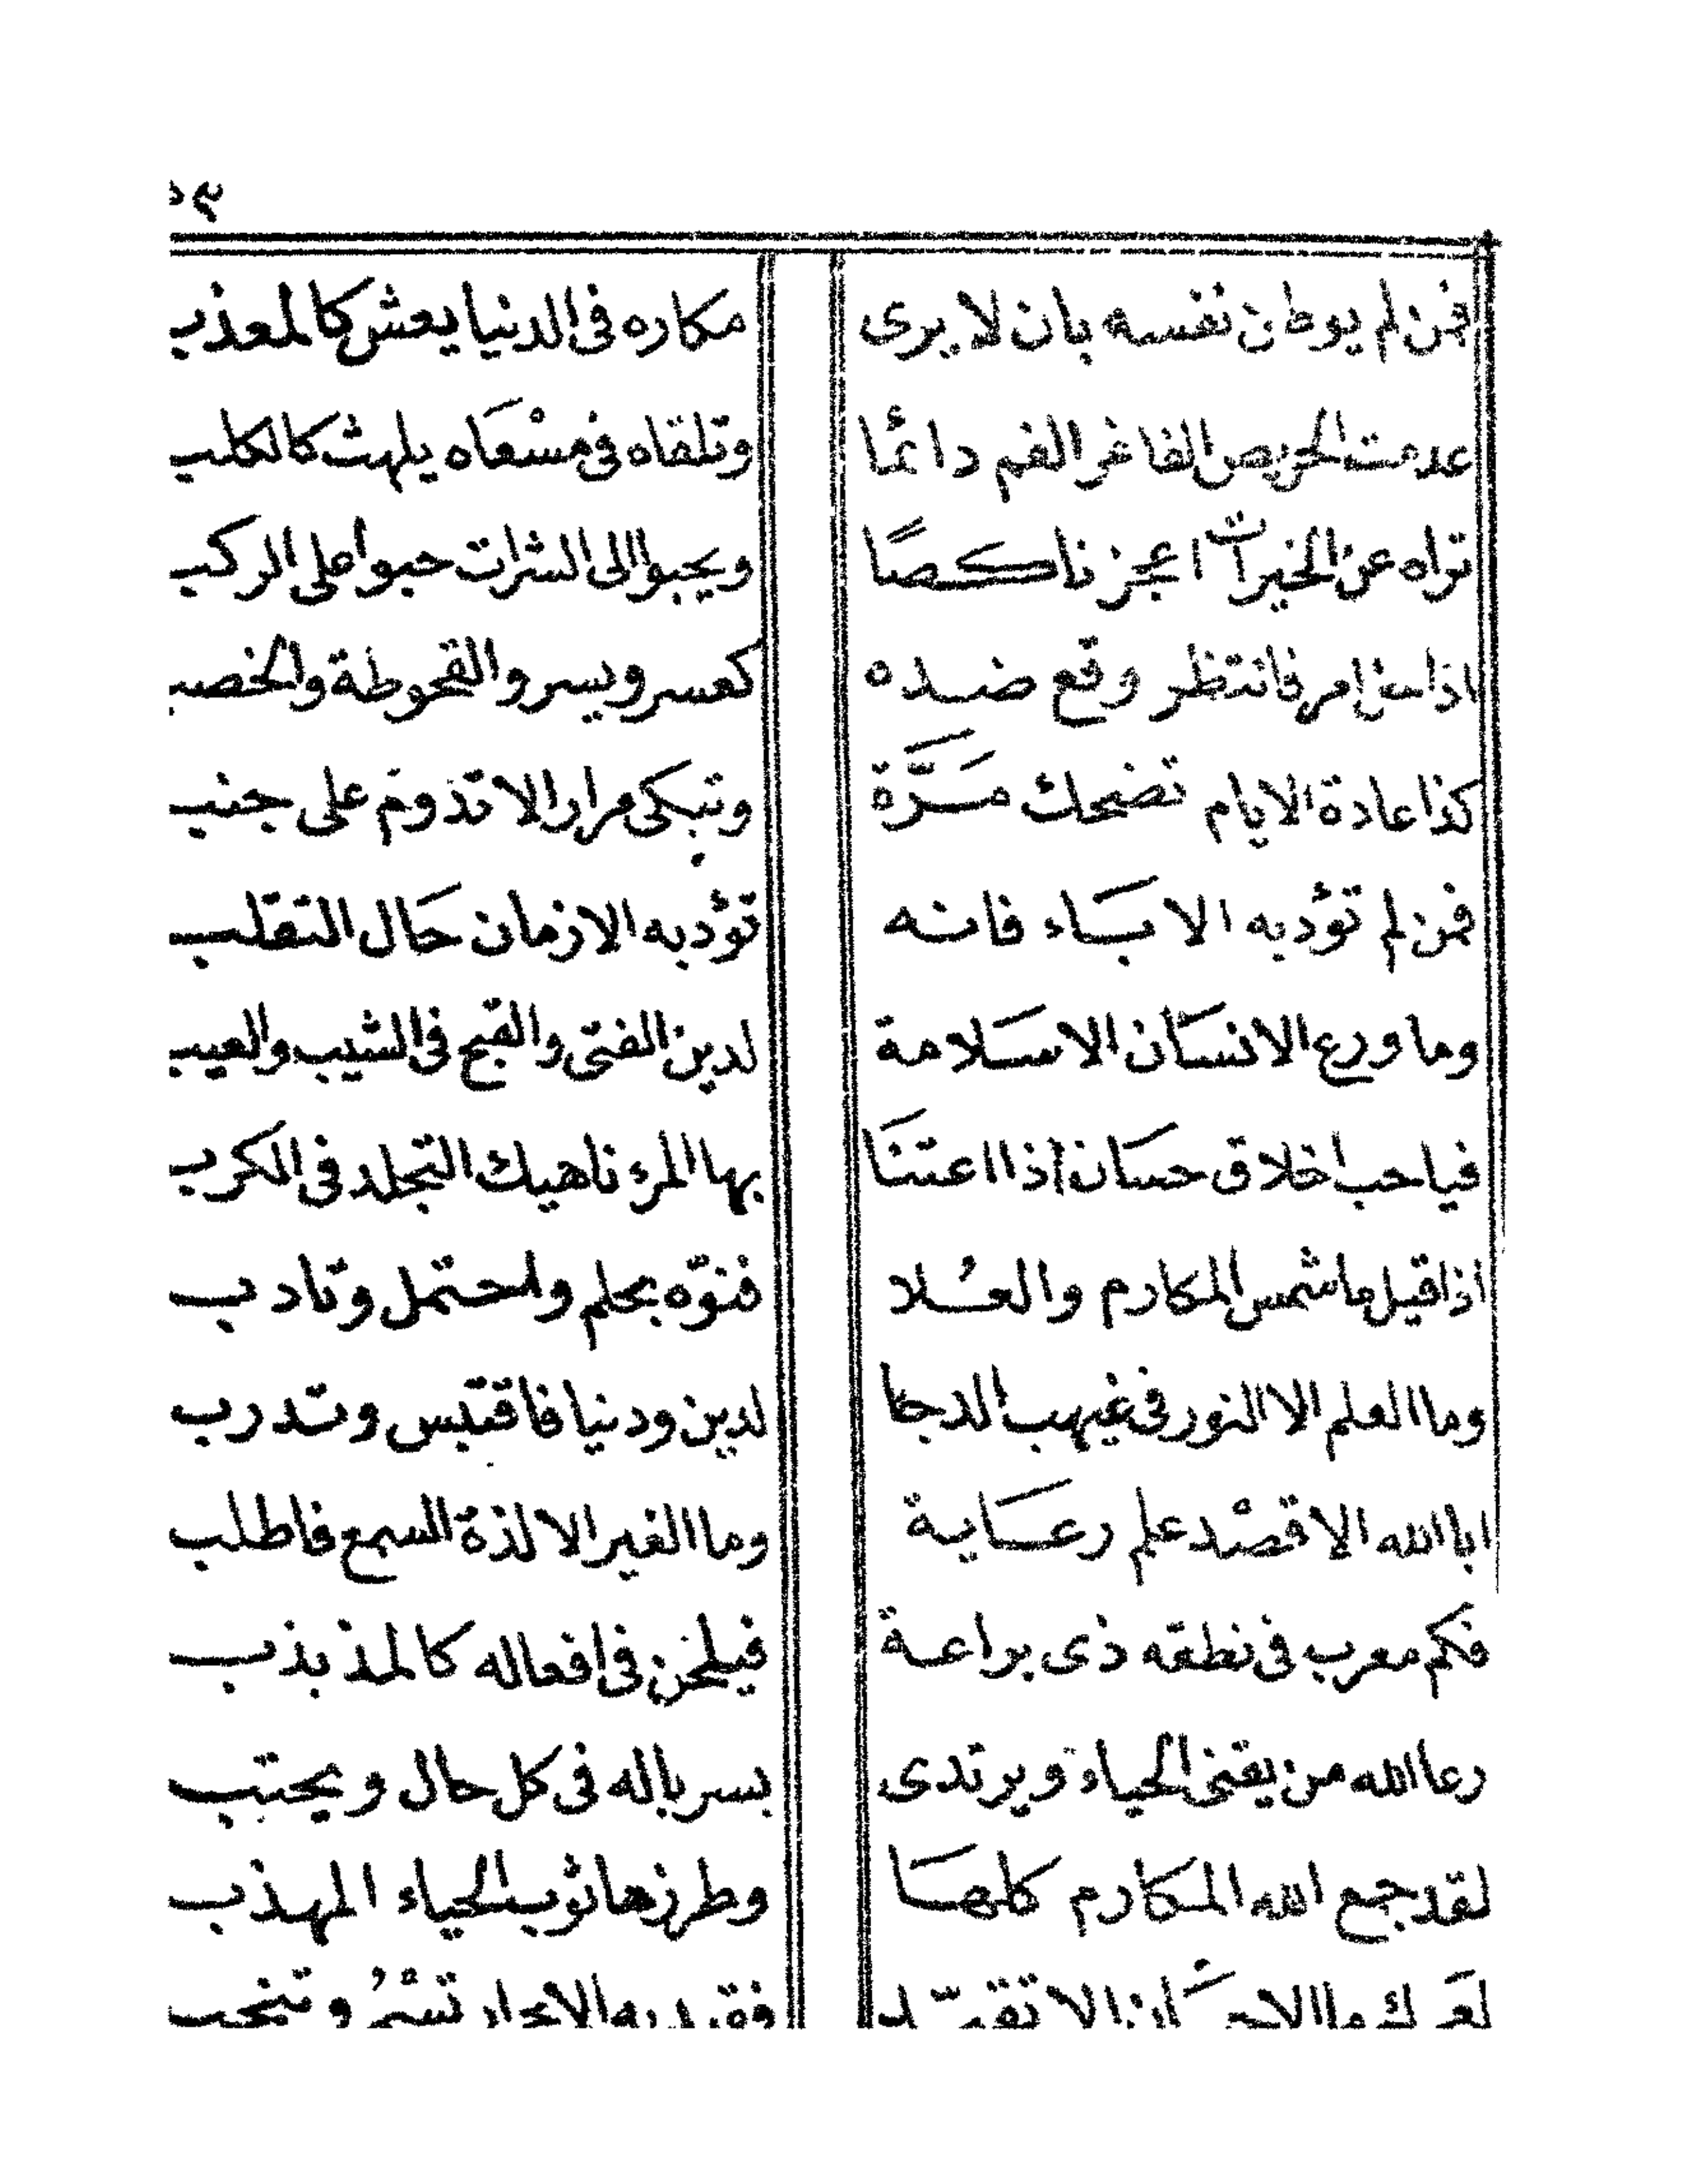 فمن لم يوطن نفسه بان لا يرى مكاره فى الدنيا يعش كالمعذب
عدمت الحريص الفاغر الفم دائما وتلقاه فى مسْعَاه يلهث كالكلب
تراه عن الخيرات اعجز ناكصًا ويحبوا الى الشرات حبوا على الركب
اذا امر فانتظر وقع ضده كعسر ويسر والقحوطة والخصب
كذا عادة الايام تضحك مَرَّة وتبكى مرارا لا تدوم على جنب
فمن لم تؤدبه الابَاء فانه تؤدبه الازمان حَال التقلب
وما ورع الانسَان الا سَلامة لدين الفتى والقبح فى الشيب والعيب
فيا حب اخلاق حسَان اذا اعتنَا بها المرء ناهيك التجلد فى الكرب
اذا قيل ما شمس المكارم والعُلا فنوّه بحلم واحتمل وتادب
وما العلم الا النور فى غيهب الدجا لدين ودنيا فاقتبس وتدرب
ابا الله الا قصْد علم رعَاية وما الغير الا لذة السمع فاطلب
فكم معرب فى نطقه ذى براعة فيلحن فى افعاله كالمذبذب
رعا الله من يقنى الحياء ويرتدى بسرباله فى كل حال ويحتب
لقد جمع الله المكارم كلهَا وطرزها ثوب الحياء المهذب